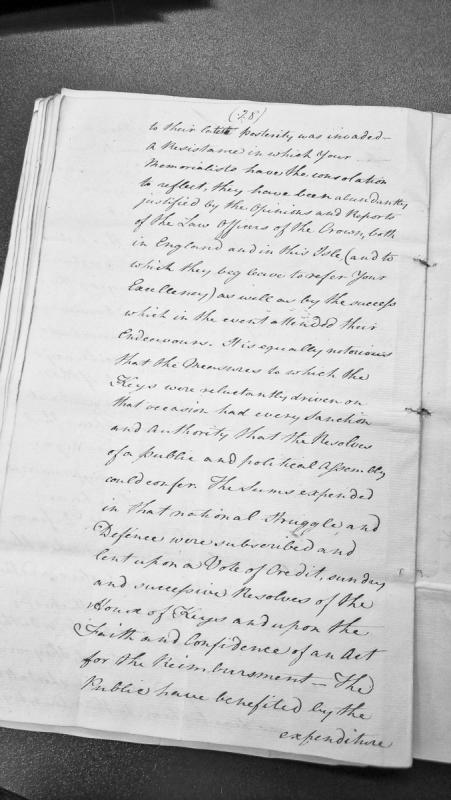 (28)
to their latest posterity was invaded—
a Resistance in which Your
Memorialists have the consolation
to reflect, they have been abundantly
justified by the Opinions and Reports
of the Law Officers of the Crown, both
in England and in this Isle (and to
which they beg leave to refer Your
Excellency) as well as by the success
which in the event attended their
Endeavours. It is equally notorious
that the Measures to which the
Keys were reluctantly driven on
that occasion had every Sanction
and Authority that the Resolves
of a public and political Assembly
could confer. The Sums expended
in that national Struggle and
Defence were subscribed and
lent upon a Vote of Credit, sundry
and successive Resolves of the
House of Keys and upon the
Faith and Confidence of an Act
for the Reimbursment — The
Public have benefited by the
expenditure